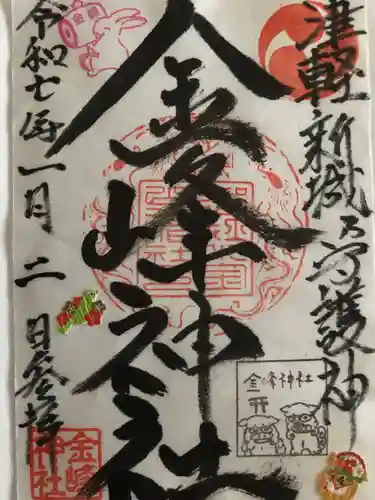 津軽新城乃守護神
金峰神社
令和七年一月二日参拝
金峰神社
金峰
神社